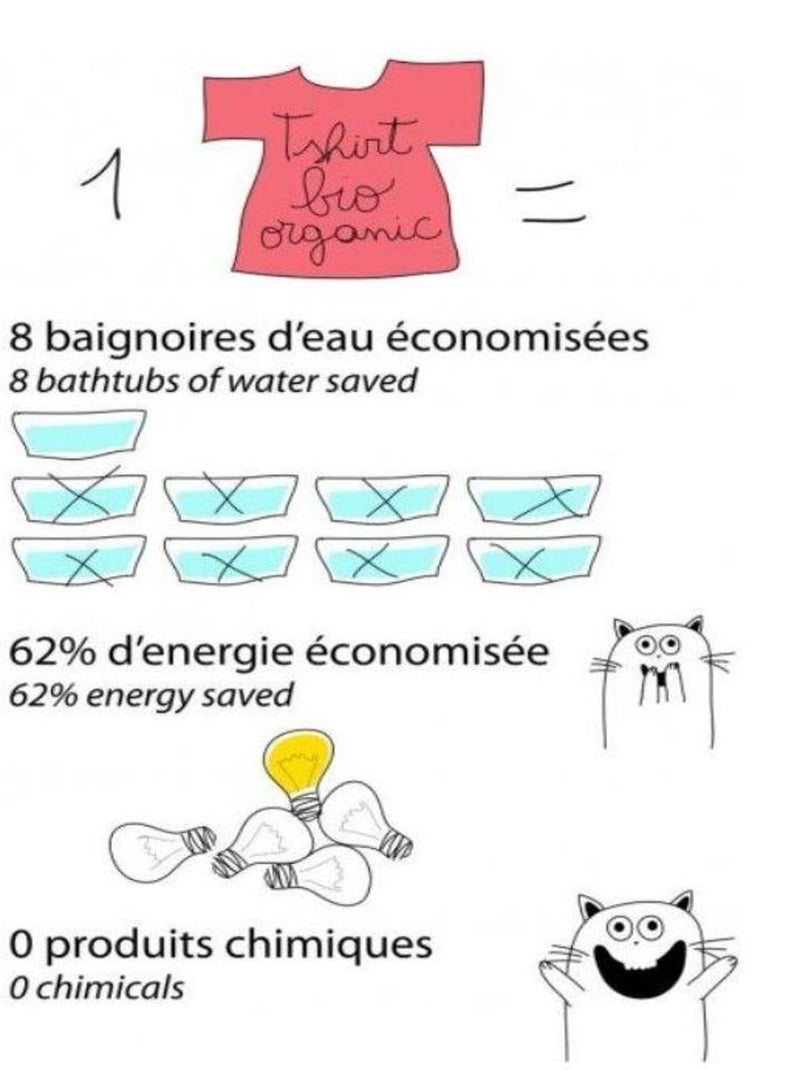 1
Tshirt
bio
organic
=
8 baignoires d'eau économisées
8 bathtubs of water saved
62% d'energie économisée
62% energy saved
0 produits chimiques
0 chimicals